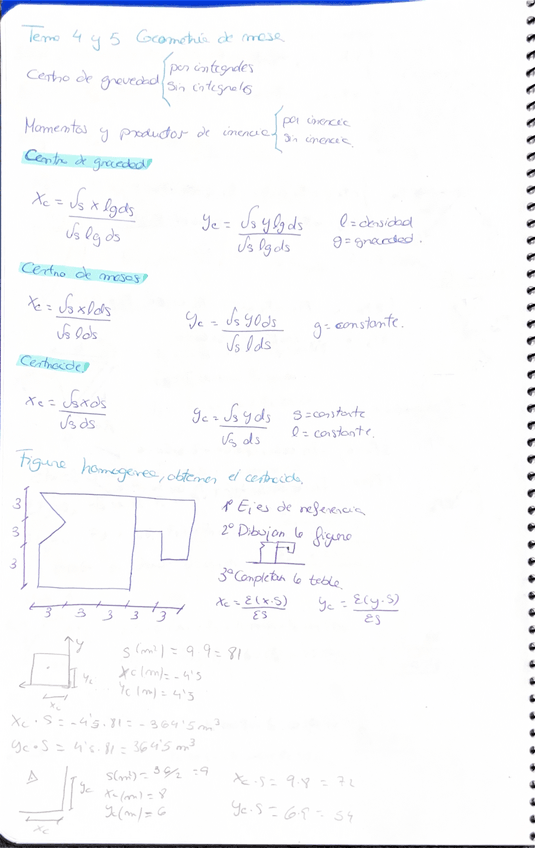 Tema 4 y 5 Geometría de masa
Centro de gravedad { por integrales
sin integrales
Momentos y productos de inercia { por inercia
sin inercia.
Centro de gravedad
Xc = ∫s x lg ds / ∫s lg ds
yc = ∫s y lg ds / ∫s lg ds
l = densidad
g = gravedad.
Centro de masas
Xc = ∫s x l ds / ∫s l ds
yc = ∫s y l ds / ∫s l ds
g = constante.
Centroide
Xc = ∫s x ds / ∫s ds
yc = ∫s y ds / ∫s ds
s = constante
l = constante.
Figura homogenea, obtener el centroide.
3
3
3
3 3 3 3 3
1º Ejes de referencia
2º Dibujan la figura
3º Completan la tabla.
Xc = Σ(x·S) / ΣS
yc = Σ(y·S) / ΣS
y
yc
xc
S(m²) = 9·9 = 81
Xc(m) = -4'5
Yc(m) = 4'5
Xc · S = -4'5 · 81 = -364'5 m³
yc · S = 4'5 · 81 = 364'5 m³
yc
xc
S(m²) = 3·6/2 = 9
Xc(m) = 8
Yc(m) = 6
Xc·S = 9·8 = 72
Yc·S = 6·9 = 54